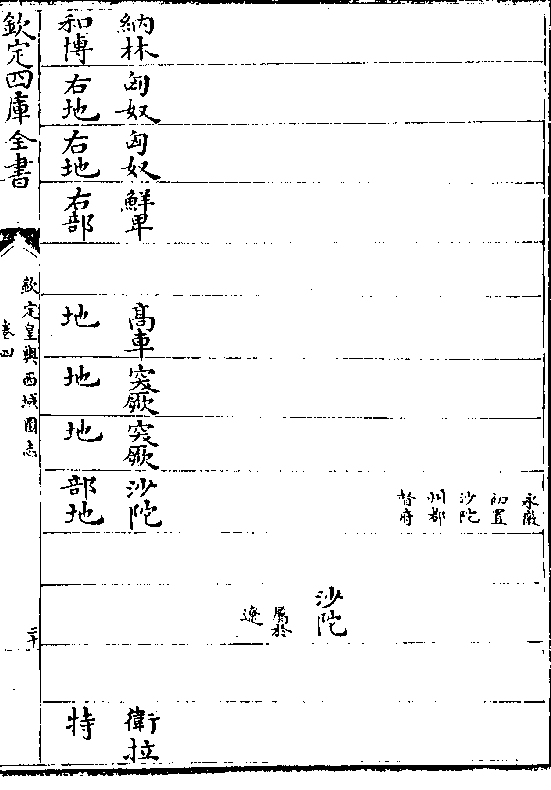 納林
和博
匈奴
右地
匈奴
右地
鮮卑
右部
高車
地
突厥
地
突厥
地
永徽
初置
沙陀
州都
督府
沙陀
部地
沙陀
屬於
遼
衛拉
特
欽定四庫全書
欽定皇輿西域圖志
卷四
二十